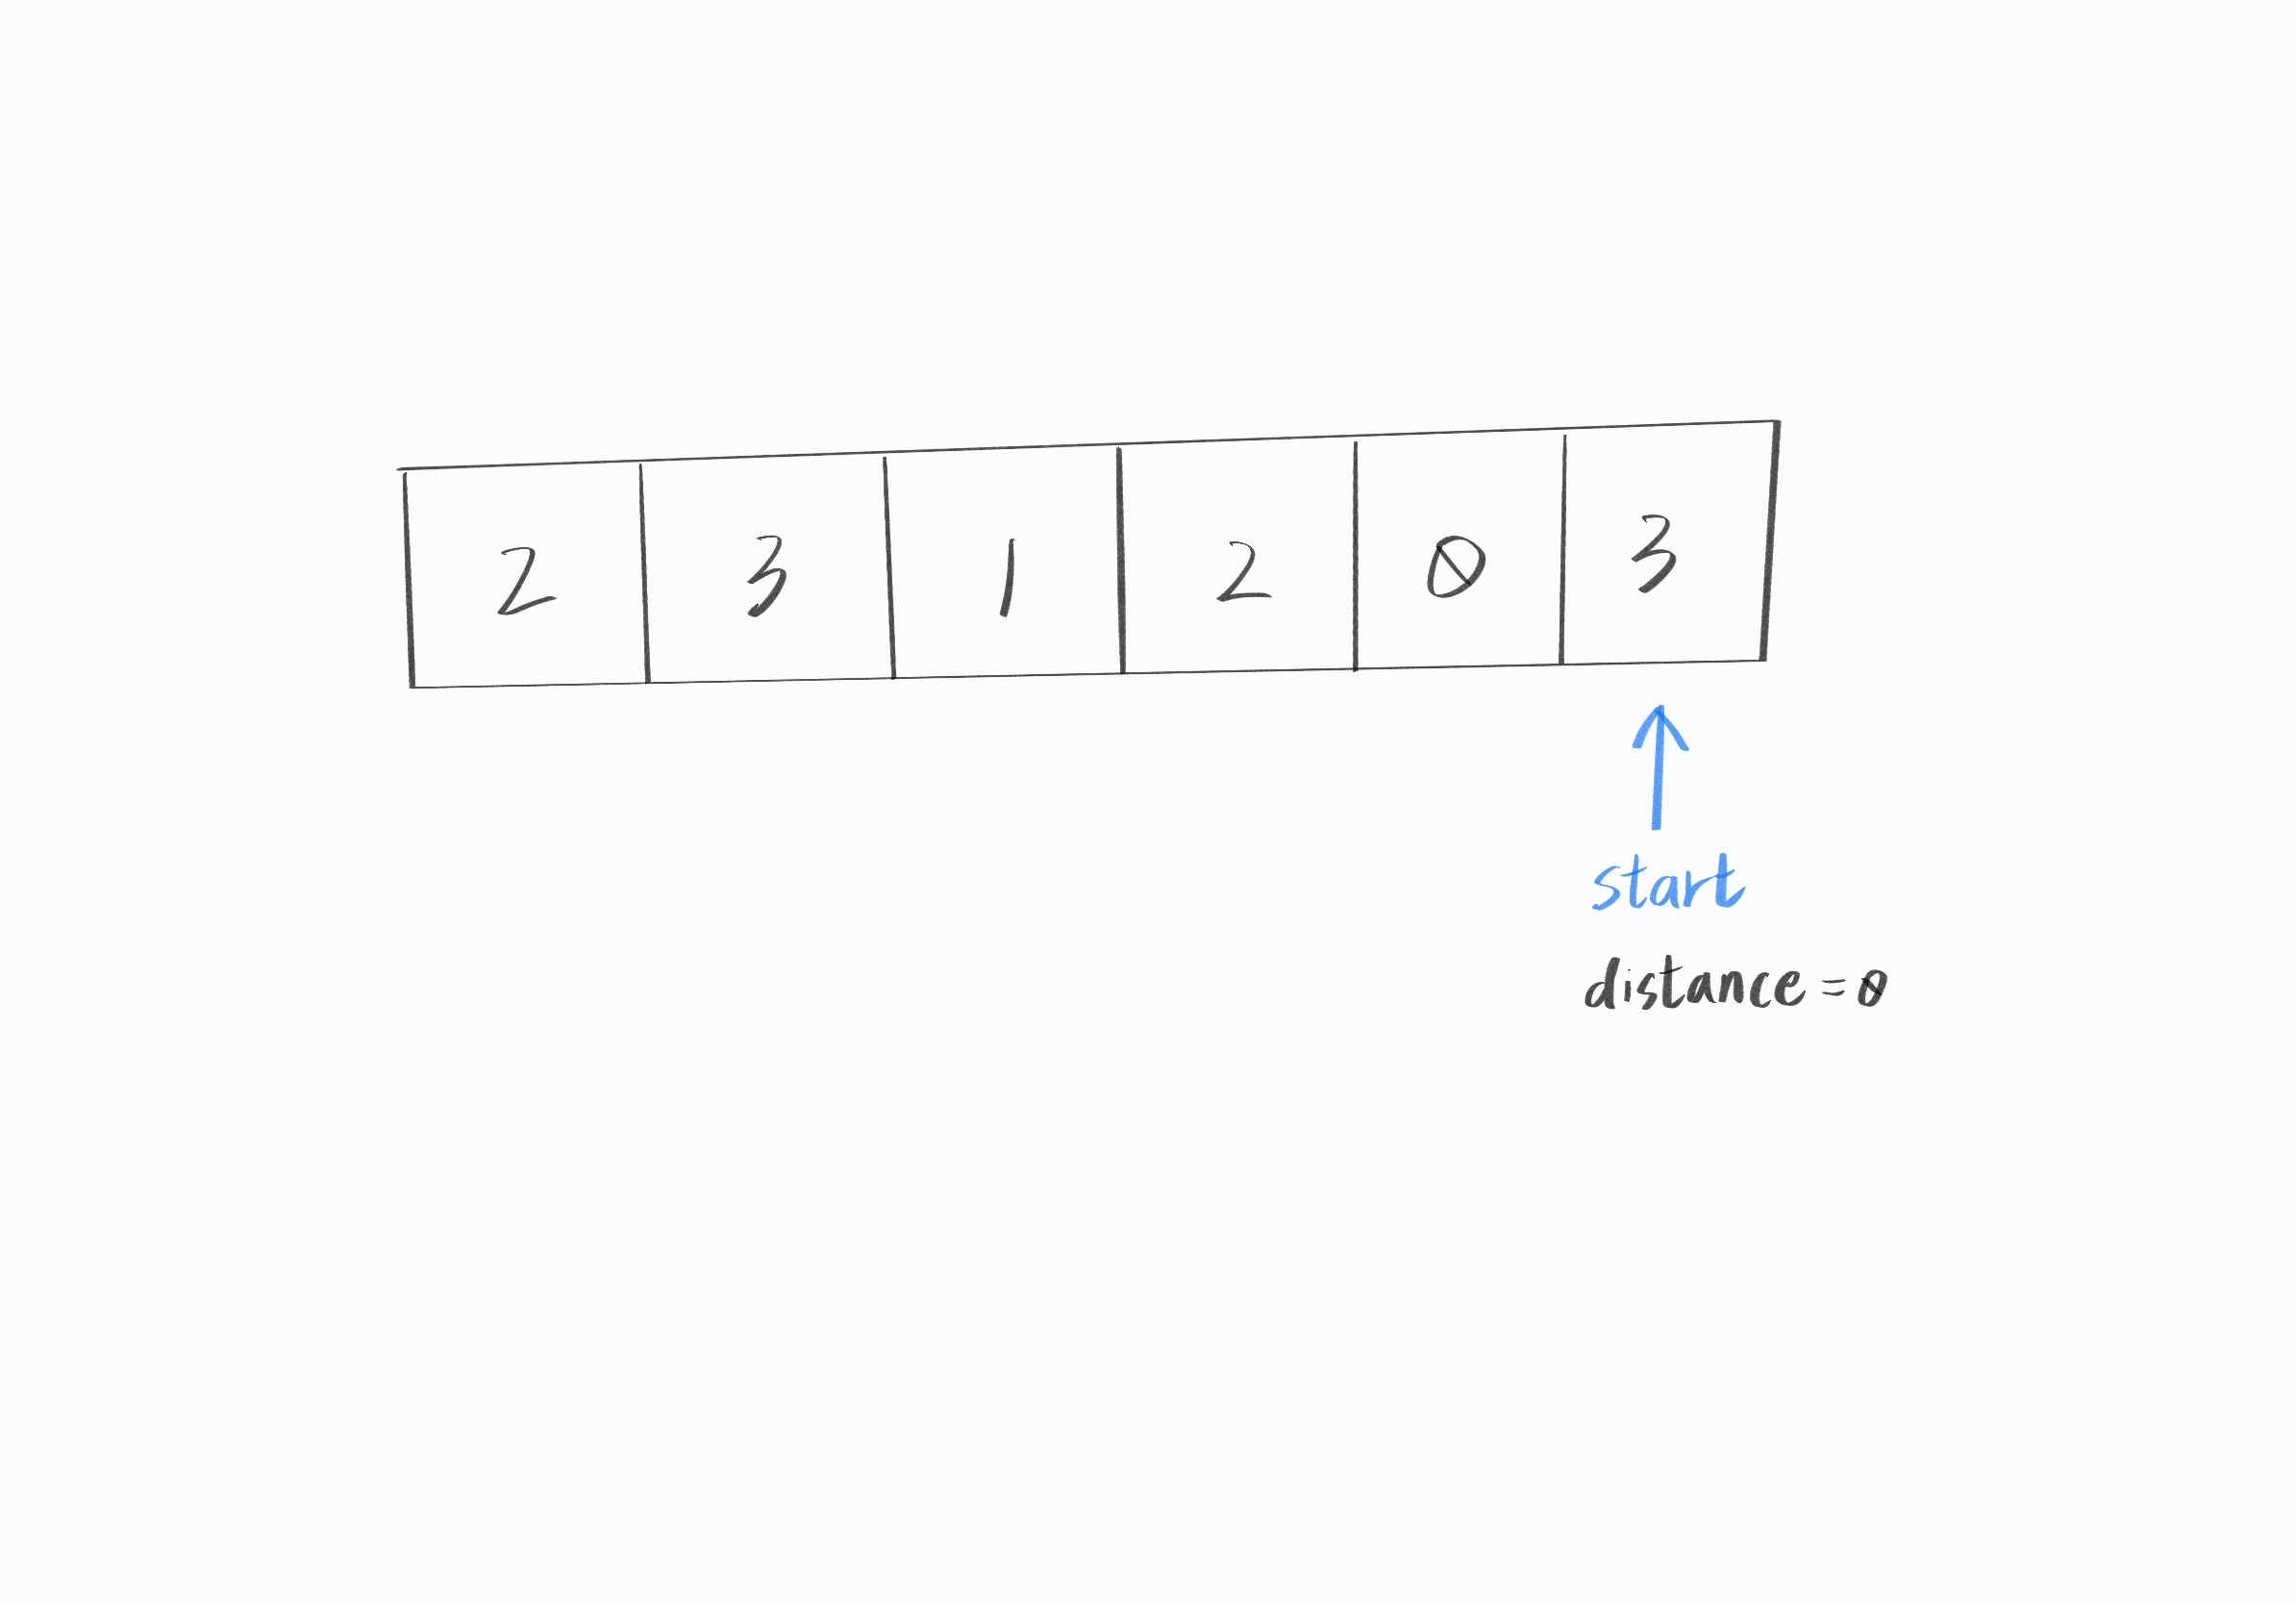 2 3 1 2 0 3
start
distance = 0